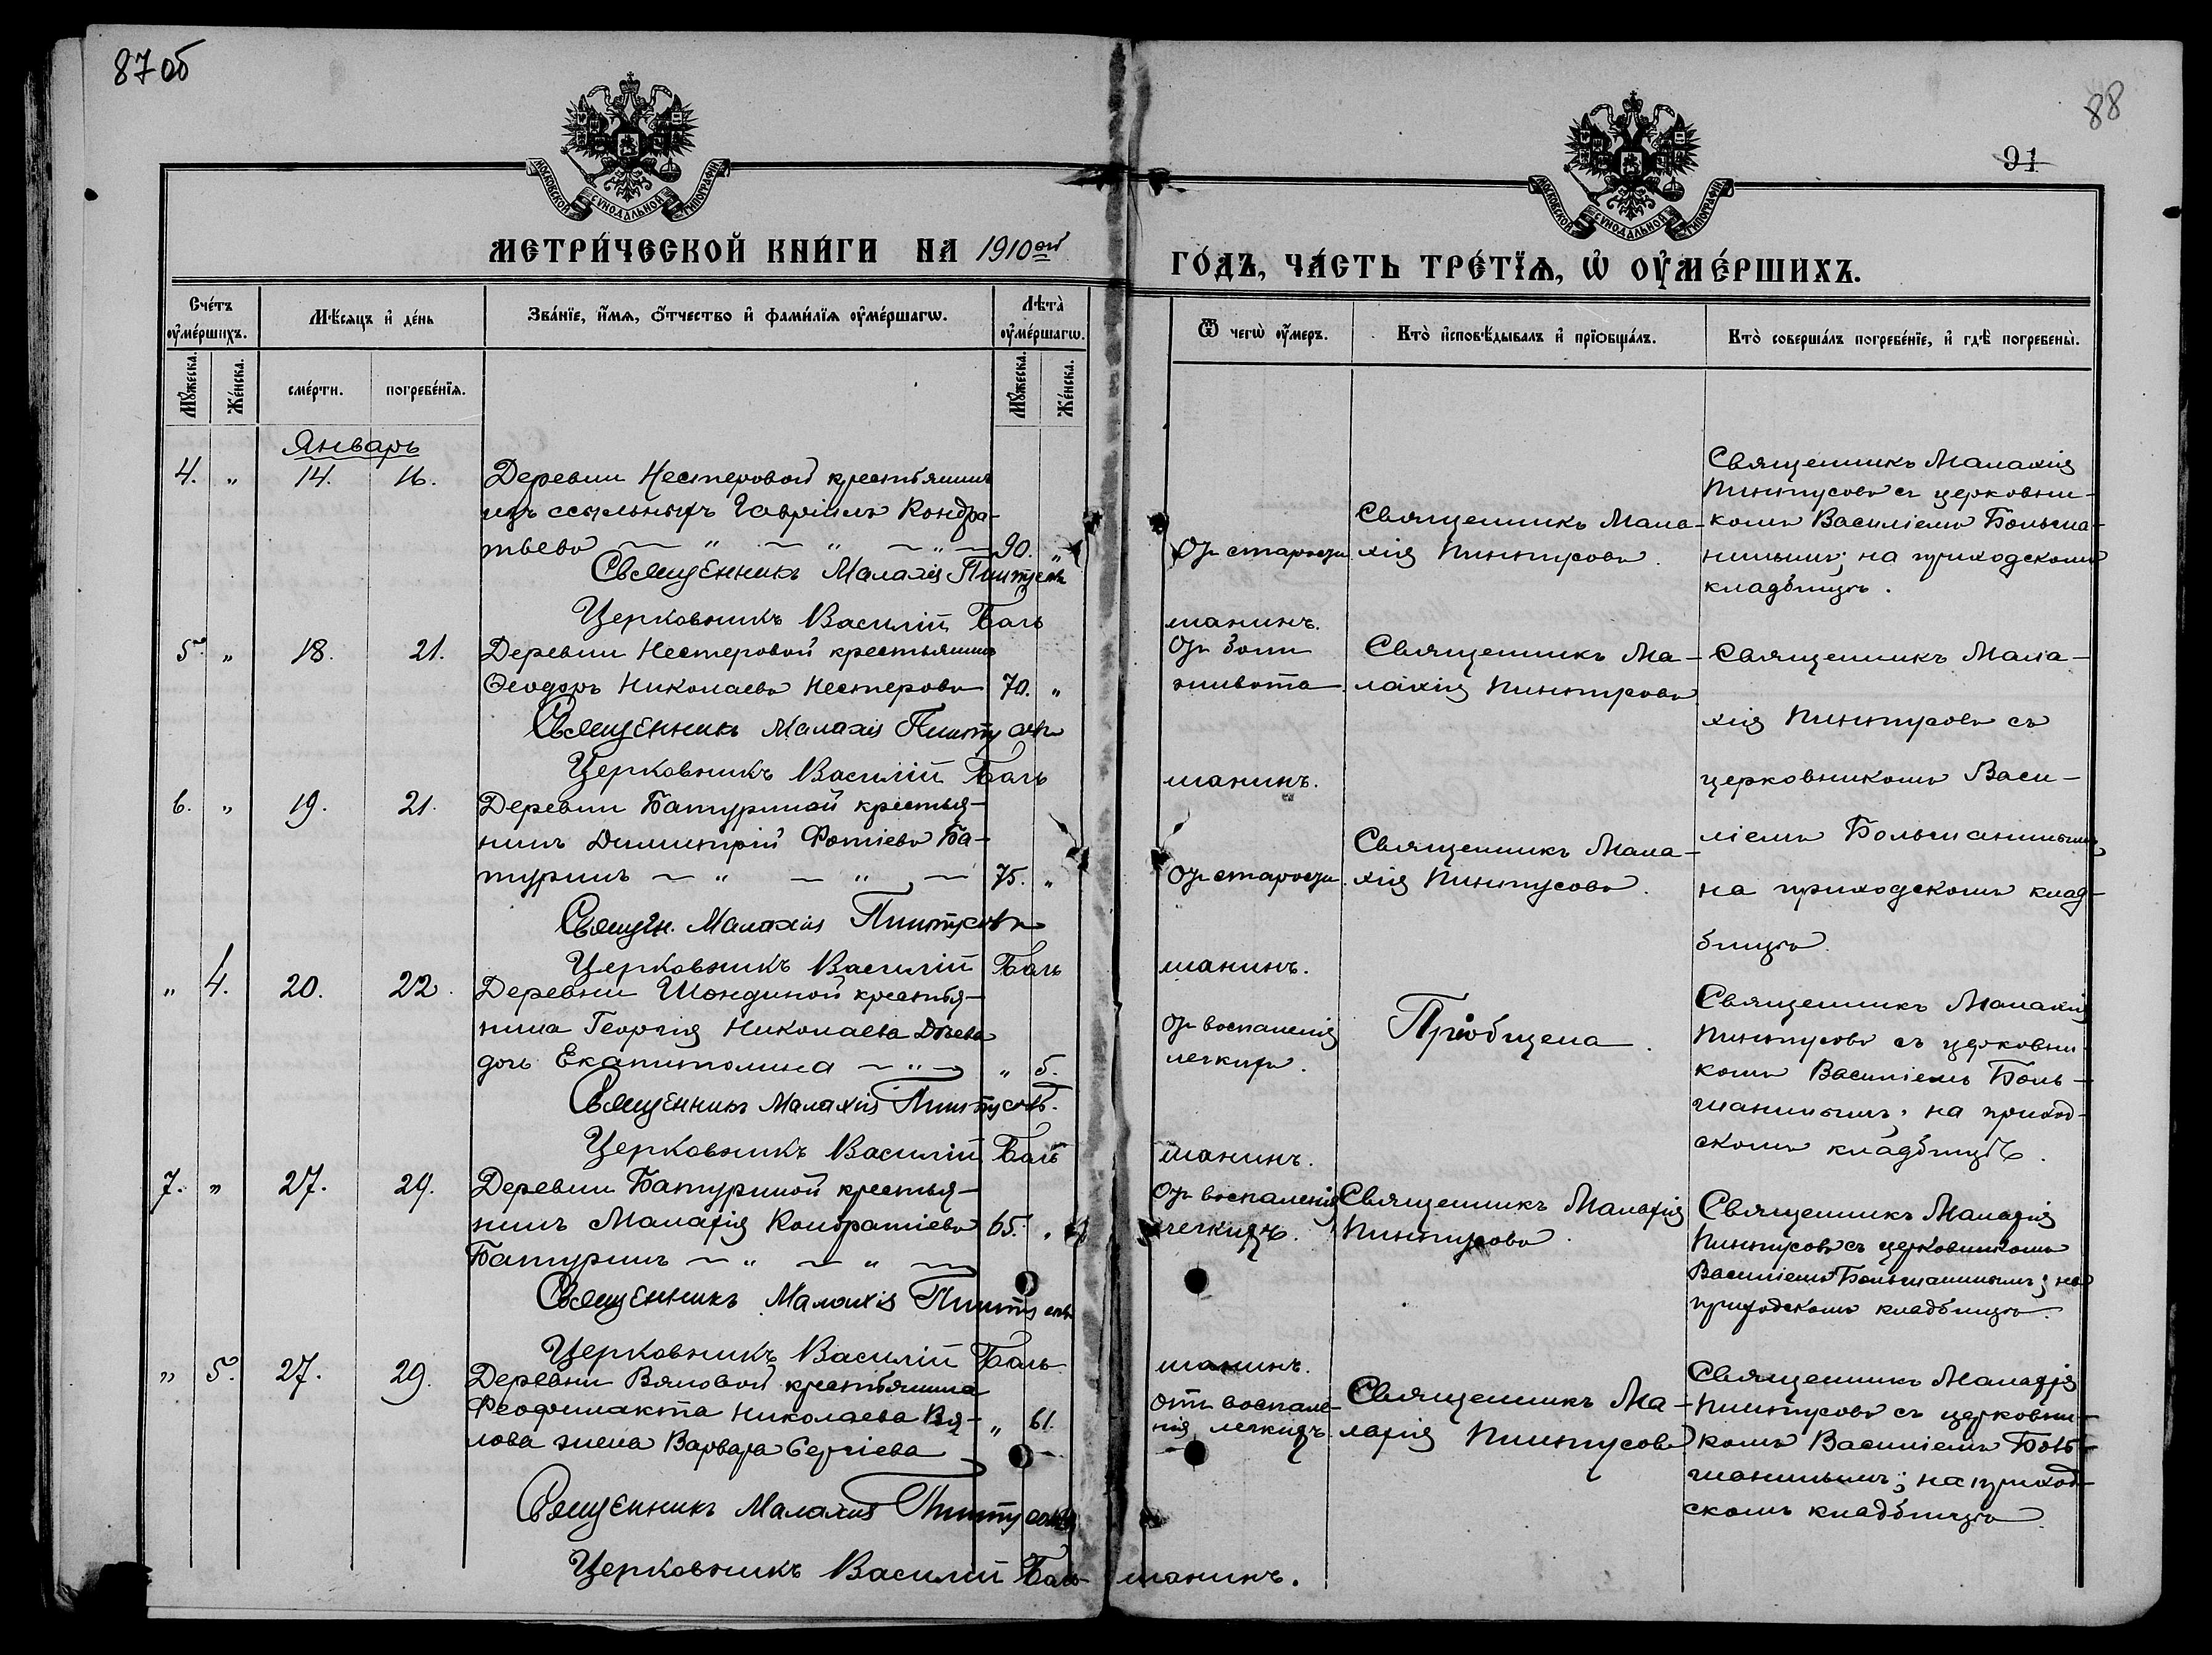 87 об
88
91
МОСКОВСКОЙ СѴНОДАЛЬНОЙ ТИПОГРАФІИ
МОСКОВСКОЙ СѴНОДАЛЬНОЙ ТИПОГРАФІИ
МЕТРИ́ЧЕСКОЙ КНИ́ГИ НА 1910ой
ГО́ДЪ, ЧА́СТЬ ТРЕ́ТЇѦ, Ѡ҆ ОУ҆МЕ́РШИХЪ.
Сче́тъ оу҆ме́ршихъ.
Мꙋ́жеска.
Же́нска.
Мѣ́сѧцъ и҆ де́нь
сме́рти.
погребе́нїѧ.
Зва́нїе, и҆́мѧ, ѻ҆́тчество и҆ фами́лїѧ оу҆ме́ршагѡ.
Лѣта̀ оу҆ме́ршагѡ.
Мꙋ́жеска.
Же́нска.
Ѿ чегѡ̀ оу҆́меръ.
Кто̀ и҆сповѣ́дывалъ и҆ прїѡбща́лъ.
Кто̀ соверша́лъ погребе́нїе, и҆ гдѣ̀ погребены̀.
Январь
4. „ 14. 16.
Деревни Нестеровой крестьянинъ
изъ ссыльныхъ Гавріилъ Кондра-
тьевъ — „ — „ — „ — 90. „
Отъ старости.
Священникъ Мала-
хія Пинтусовъ.
Священникъ Малахія
Пинтусовъ съ церковни-
комъ Василіемъ Больша-
нинымъ; на приходскомъ
кладбищѣ.
Священникъ Малахія Пинтусовъ
Церковникъ Василій Боль шанинъ.
5. „ 18. 21.
Деревни Нестеровой крестьянинъ
Ѳеодоръ Николаевъ Нестеровъ 70. „
Отъ боли
живота
Священникъ Ма-
лахія Пинтусовъ
Священникъ Мала-
хія Пинтусовъ съ
церковникомъ Васи-
ліемъ Большанинымъ
на приходскомъ клад-
бищѣ.
Священникъ Малахія Пинтусовъ
Церковникъ Василій Боль шанинъ.
6. „ 19. 21.
Деревни Батуриной крестья-
нинъ Димитрій Фотіевъ Ба-
туринъ — „ — „ — 75. „
Отъ старости.
Священникъ Мала-
хія Пинтусовъ.
Священ. Малахія Пинтусовъ
Церковникъ Василій Боль шанинъ.
„ 4. 20. 22.
Деревни Шондиной крестья-
нина Георгія Николаева
дочь Екапитолина — „ — „ 5.
Отъ воспаленія
легкихъ.
Пріобщена.
Священникъ Малахія
Пинтусовъ съ церковни-
комъ Василіемъ Боль-
шанинымъ; на приход-
скомъ кладбищѣ.
Священникъ Малахія Пинтусовъ.
Церковникъ Василій Боль шанинъ.
7. „ 27. 29.
Деревни Батуриной крестья-
нинъ Малахія Кондратіевъ 65. „
Батуринъ — „ — „ —
Отъ воспаленія
легкихъ.
Священникъ Малахія
Пинтусовъ.
Священникъ Малахія
Пинтусовъ съ церковникомъ
Василіемъ Большанинымъ; на
приходскомъ кладбищѣ.
Священникъ Малахія Пинтусовъ
Церковникъ Василій Боль шанинъ.
„ 5. 27. 29.
Деревни Вяловой крестьянина
Феофилакта Николаева Вя- „ 61.
лова жена Варвара Сергіева
Отъ воспале-
нія легкихъ.
Священникъ Ма-
лахія Пинтусовъ
Священникъ Малахія
Пинтусовъ съ церковни-
комъ Василіемъ Боль-
шанинымъ; на приход-
скомъ кладбищѣ
Священникъ Малахія Пинтусовъ
Церковникъ Василій Боль шанинъ.